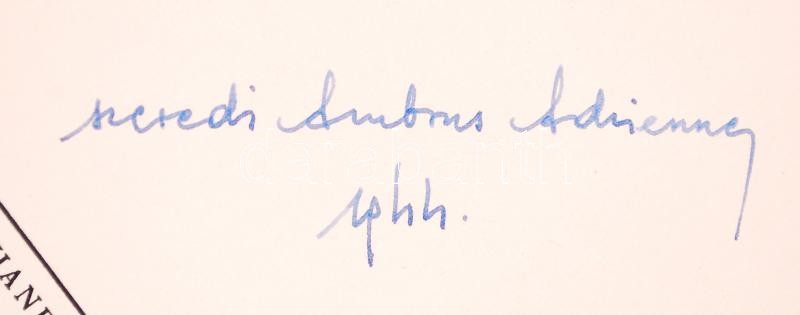 szeredi Ambrus Adrienne
1944.
darabanth
IAN